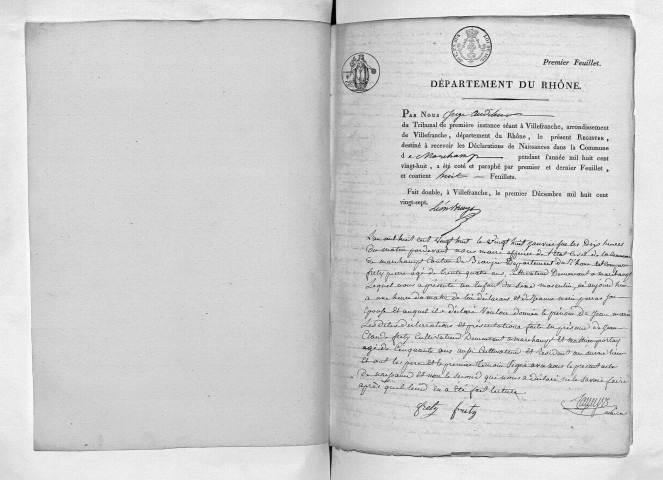 Premier Feuillet.
DÉPARTEMENT DU RHÔNE.
PAR NOUS Juge auditeur
du Tribunal de première instance séant à Villefranche, arrondissement
de Villefranche, département du Rhône, le présent REGISTRE,
destiné à recevoir les Déclarations de Naissances dans la Commune
de Marchamp pendant l'année mil huit cent
vingt-huit, a été coté et paraphé par premier et dernier Feuillet,
et contient huit Feuillets.
Fait double, à Villefranche, le premier Décembre mil huit cent
vingt-sept.
L'an mil huit cent vingt huit le vingt huit janvier sur les dix heures
du matin pardevant nous maire officier de l'état civil de la commune
de marchampt Canton de Beaujeu Département du Rhône est comparu
frety pierre âgé de trente quatre ans, cultivateur Demeurant a marchampt
Lequel nous a présenté un Enfant du sexe masculin, né aujourd'hui
a une heure du matin de lui déclarant et de
Epouse et auquel il a déclaré vouloir donner le prénom de Jean marie
Les dites déclarations et présentations faite en présence de Jean
Claude frety Cultivateur Demeurant a marchampt et
agé de Cinquante ans aussi Cultivateur et Resident au même lieu
et ont les pere et le premier temoin signé avec nous le present acte
de naissance et non le second qui nous a déclaré ne le savoir faire
après que lecture en a été fait
frety frety